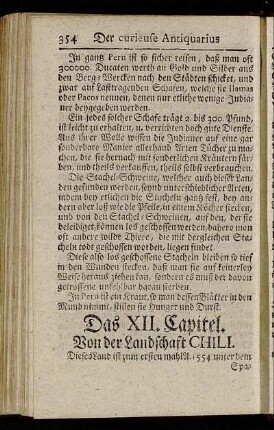 354 Der curieuse Antiquarius
In gantz Peru ist so sicher reisen, daß man oft
300000. Ducaten werth an Gold und Silber aus
den Berg-Wercken nach den Städten schicket, und
zwar auf Lasttragenden Schafen, welche sie Ilamas
oder Pacos nennen, denen nur etliche wenige Indiä-
ner beygegeben werden.
Ein jedes solcher Schafe trägt 2. bis 300. Pfund,
ist leicht zu erhalten, u. verrichten doch gute Dienste.
Aus ihrer Wolle wissen die Indianer auf eine gar
sonderbare Manier allerhand Arten Tücher zu ma-
chen, die sie hernach mit sonderlichen Kräutern fär-
ben, und theils verkauffen, theils selbst verbrauchen.
Die Stachel-Schweine, welcher auch dieses Lan-
des gefunden werden, seynd unterschiedlicher Arten,
indem bey etlichen die Stacheln gantz fest, bey an-
dern aber loß wie die Pfeile in einem Köcher stecken,
und von den Stachel-Schweinen, auf den, der sie
beleidiget, können los geschossen werden, dahero man
oft andere wilde Thiere, die mit dergleichen Sta-
cheln todt geschossen worden, liegen findet.
Diese also los geschossene Stacheln bleiben so tief
in den Wunden stecken, daß man sie auf keinerley
Weise heraus ziehen kan, sondern es muß der davon
getroffene unfehlbar daran sterben.
In Peru ist ein Kraut, so man dessen Blätter in den
Mund nimmt, stillen sie Hunger und Durst.
Das XII. Capitel.
Von der Landschaft CHILI.
Dieses Land ist zum ersten mahl A. 1554 unter dem
Spa-